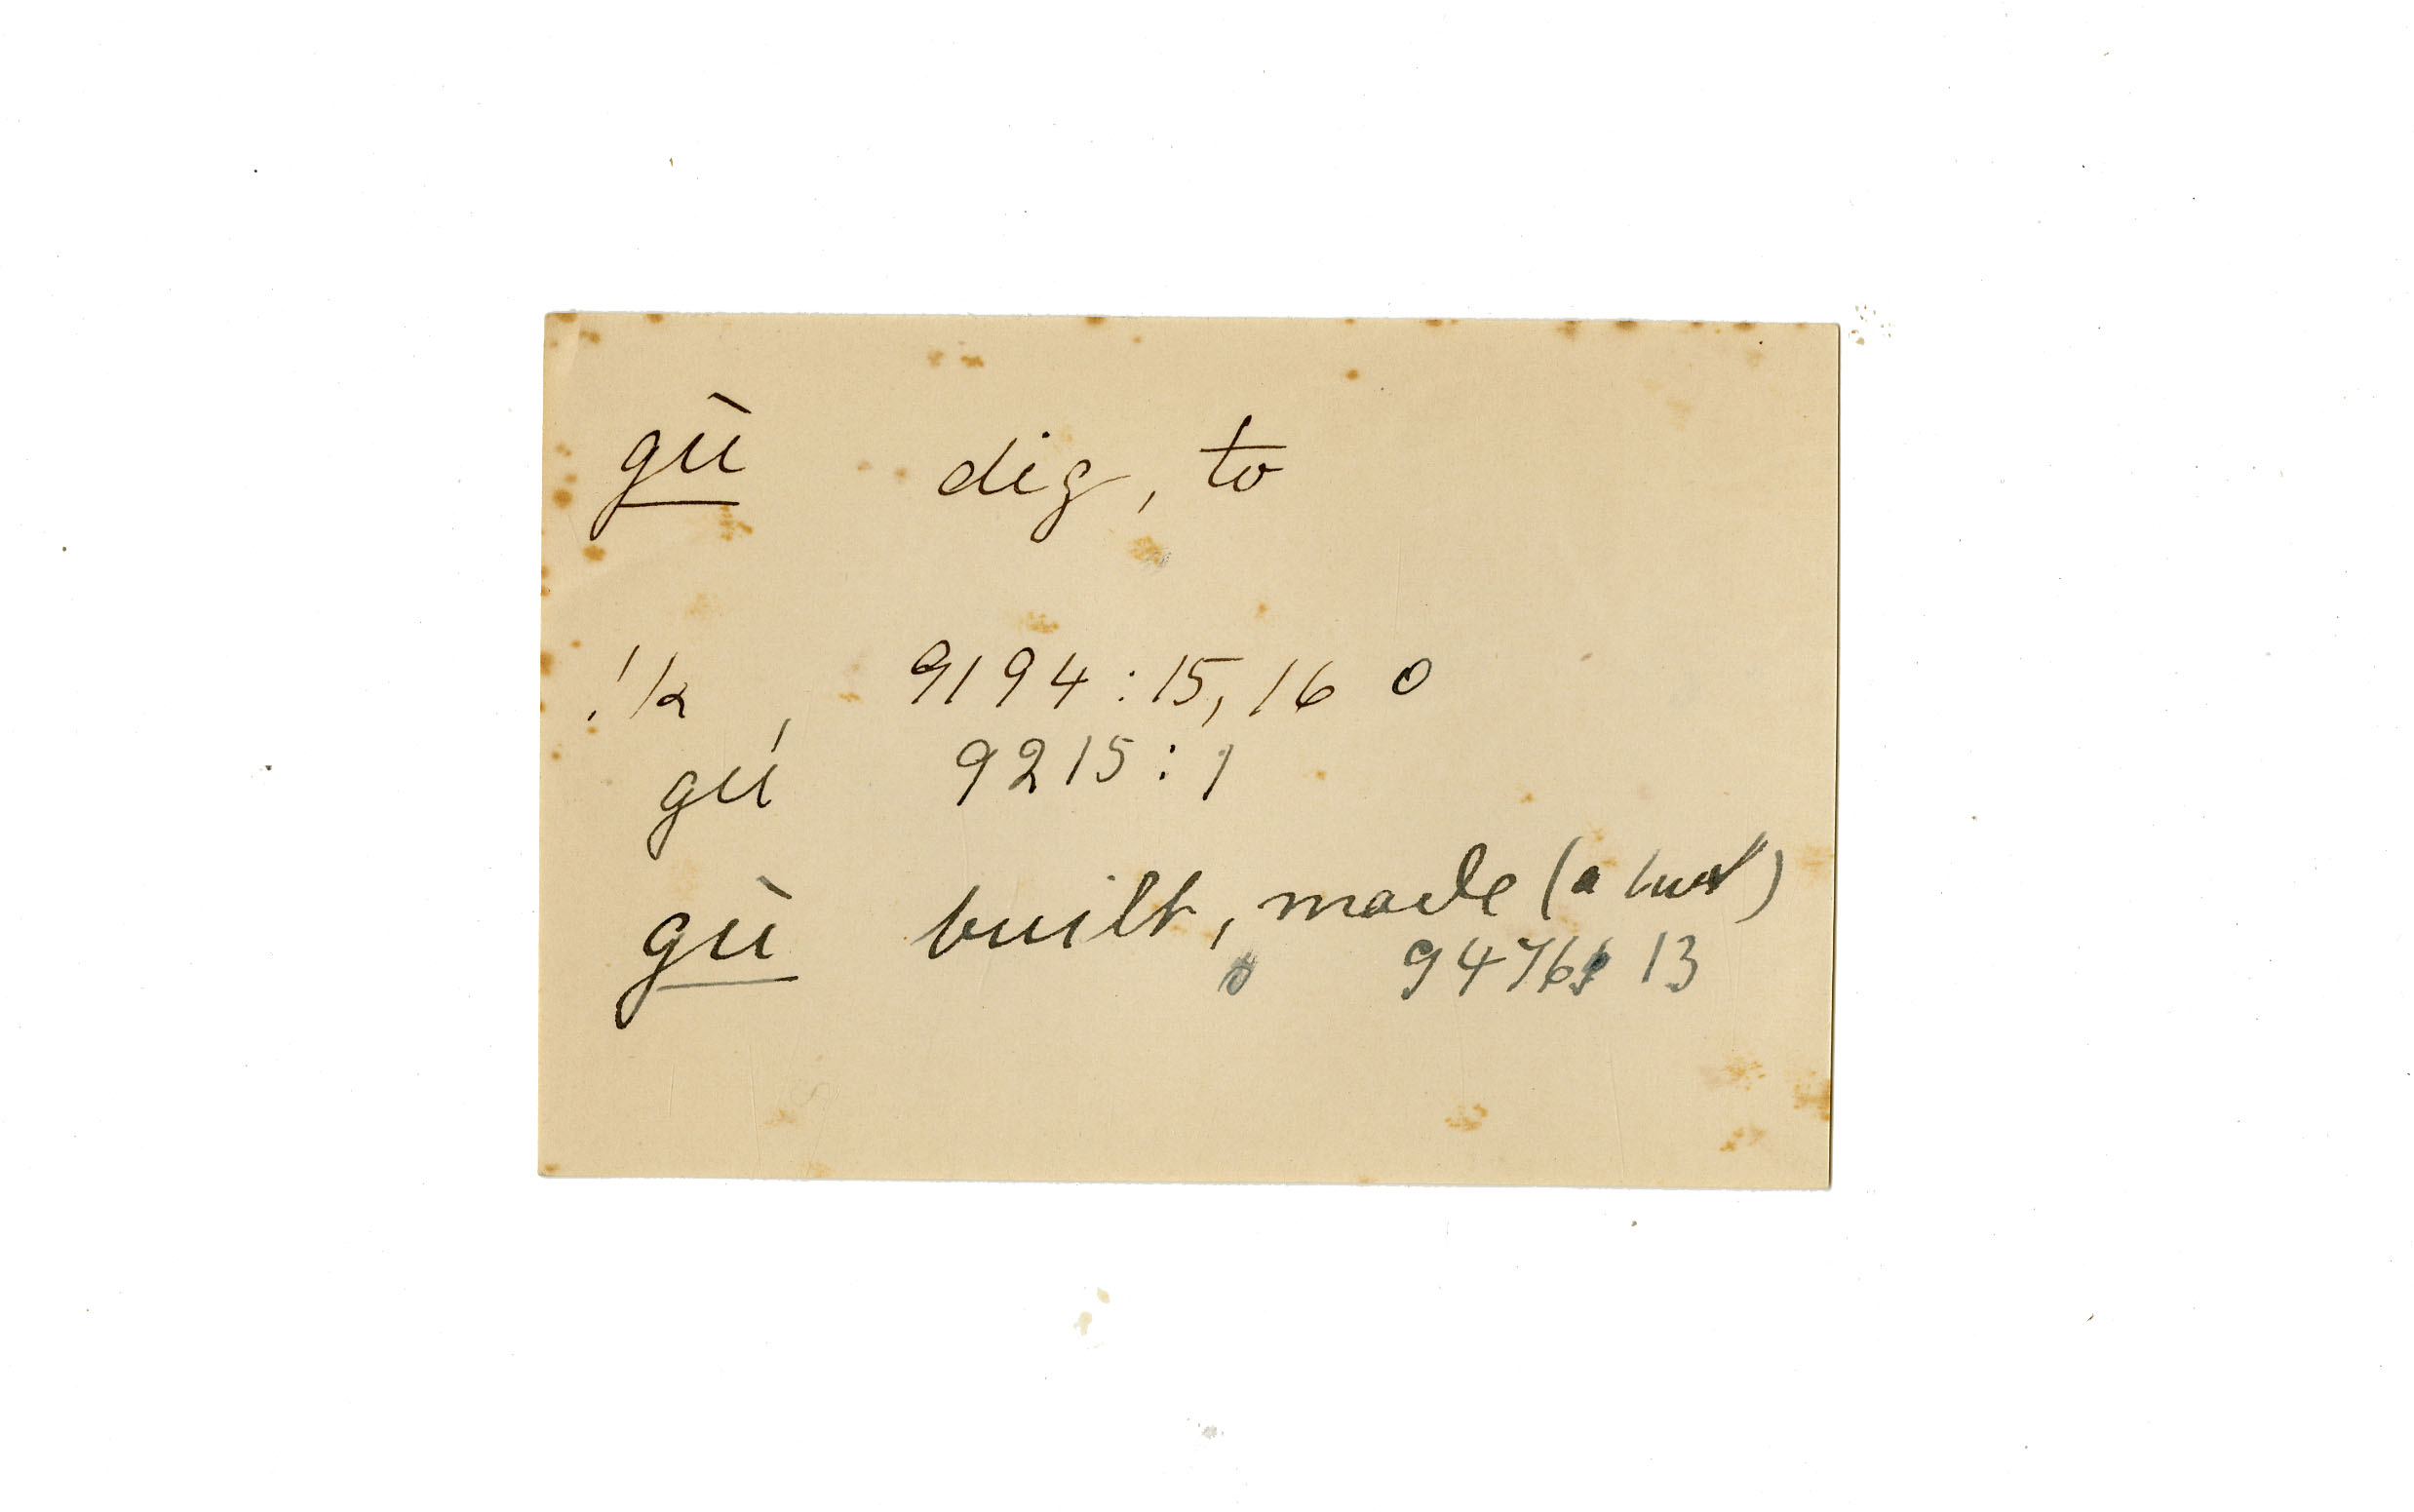 gù dig, to
!k 9194:15,16 o
gú 9215:1
gù built, made (a hut)
9476: 13